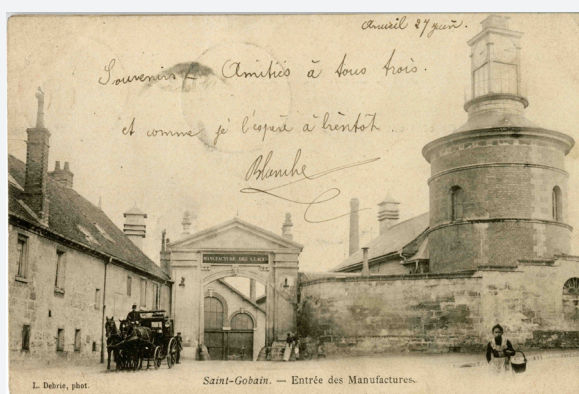 27 juin.
Souvenirs & Amitiés à tous trois.
et comme je l'espère à bientôt.
Blanche
MANUFACTURE DES GLACES
L. Debrie, phot.
Saint-Gobain. — Entrée des Manufactures.